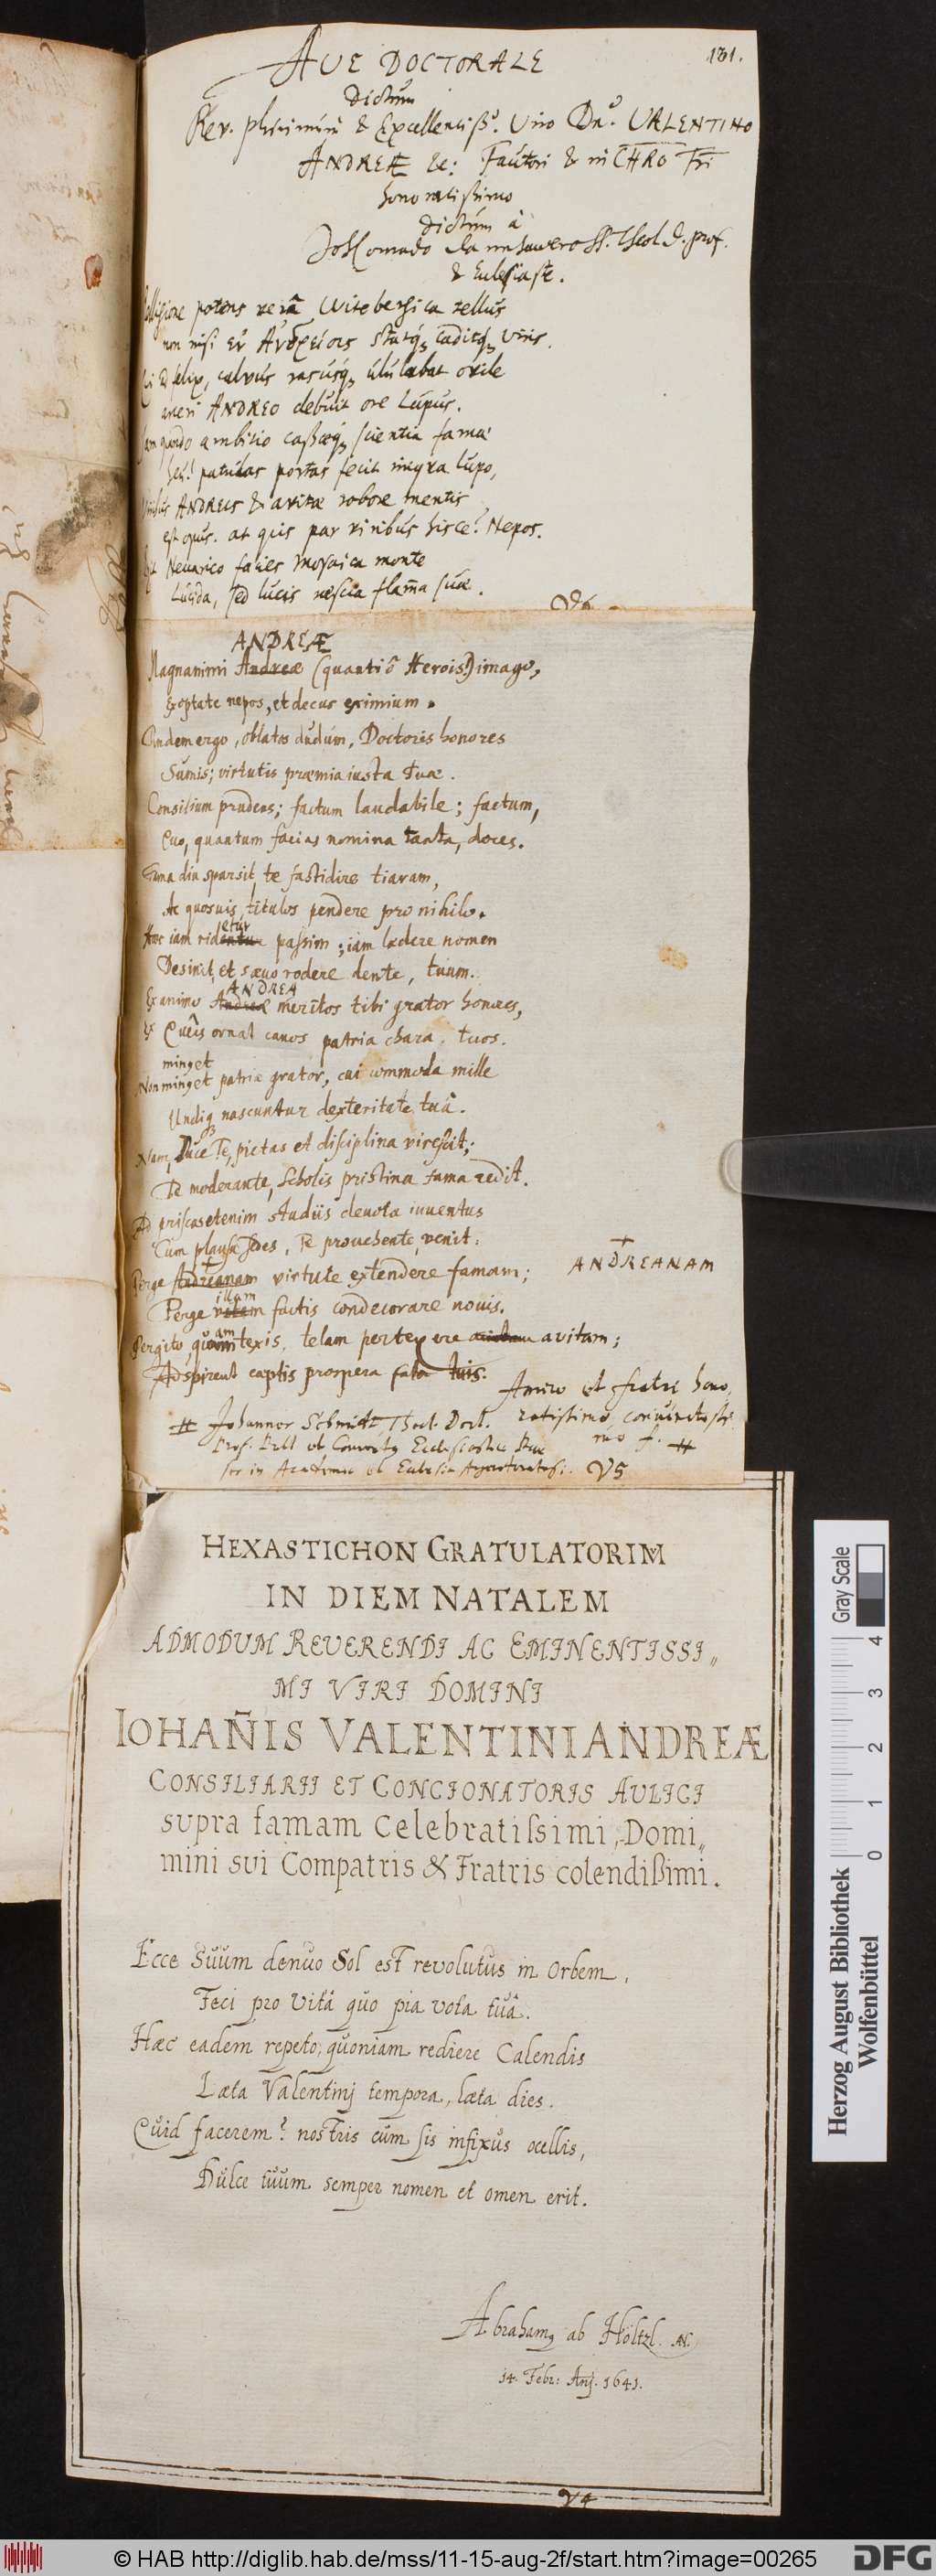 181.
AVE DOCTORALE
Dictum
Rev. plurimum & Excellentiss°. Viro Dn°. VALENTINO
ANDREÆ &c: Fautori & in CHRO Fri
honoratissimo
Dictum â
Joh Conrado Dannhawero SS. Theol. D. prof.
& Ecclesiaste.
potens verâ Witebergica tellus
non nisi statq, caditq, viris.
felix, calvus rasusq, ululabat ovile
arceri ANDREO debuit ore Lupus.
quando ambitio cassæq, scientia famæ
heu! patulas portas fecit nigra lupo,
ANDREIS & avitæ robore mentis
est opus. at quis par viribus hisce? Nepos.
Nevarico facies Mosaica monte
Lucida, sed lucis nescia flam̄a suæ.
ANDREÆ
Magnanimi Andreæ (quanti ô Herois!) imago,
Exoptate nepos, et decus eximium.
Tandem ergo, oblatos dudum, Doctoris honores
Sumis; virtutis præmia iusta Tuæ.
Consilium prudens; factum laudabile; factum,
Quo, quantum facias nomina tanta, doces.
Fama diu sparsit, te fastidire tiaram,
Ac quosuis titulos pendere pro nihilo.
etur
Hoc iam ridentur passim; iam lædere nomen
Desinit, et sæuo rodere dente, tuum.
ANDREA
Ex animo Andreæ meritos tibi grator honores,
Queis ornat canos patria chara, tuos.
minget
Non minget patriæ grator, cui commoda mille
Undiq, nascuntur dexteritate tuâ.
Nam, Duce Te, pietas et disciplina virescit;
Te moderante, Scholis pristina fama redit.
Ad priscas etenim studiis devota iuuentus
Cum plausu sedes, Te prouehente, venit.
Perge Andreanam virtute extendere famam; ANDREANAM
illam
Perge vitam factis condecorare nouis.
am
Pergito, quam texis, telam pertexere avitam;
Adspirent cœptis prospera fata tuis.
Amico et fratri hono,
ratissimo, conjunctissi
mo f.
Johannes Schmidt, Theol. Doct.
Prof. Publ. Ecclesiastici
V5
HEXASTICHON GRATULATORIVM
IN DIEM NATALEM
ADMODVM REVERENDI AC EMINENTISSI„
MI VIRI DOMINI
IOHAÑIS VALENTINI ANDREÆ
CONSILIARII ET CONCIONATORIS AULICI
supra famam Celebratissimi, Domi„
mini svi Compatris & Fratris colendißimi.
Ecce Suum denuo Sol est revolutus in Orbem,
Feci pro vitâ quo pia vota tuâ.
Hæc eadem repeto; quoniam rediere Calendis
Læta Valentinj tempora, læta dies.
Quid facerem? nostris cum sis infixus ocellis,
Dulce tuum semper nomen et omen erit.
Abraham9 ab Höltzl.
14. Febr: Anj. 1641.
V4
Gray Scale
0 1 2 3 4
Herzog August Bibliothek
Wolfenbüttel
© HAB http://diglib.hab.de/mss/11-15-aug-2f/start.htm?image=00265
DFG